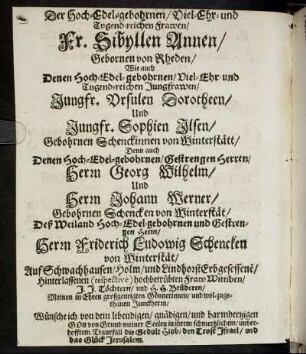 Der Hoch-Edel-gebohrnen/ Viel-Ehr- und
Tugend-reichen Frawen/
Fr. Sibyllen Annen/
Gebornen von Rheden/
Wie auch
Denen Hoch-Edel-gebohrnen/ Viel-Ehr-und
Tugend-reichen Jungfrawen/
Jungfr. Vrsulen Dorotheen/
Und
Jungfr. Sophien Ilsen/
Gebohrnen Schenckinnen von Winterstätt/
Denn auch
Denen Hoch-Edel-gebohrnen/ Gestrengen Herren/
Herrn Georg Wilhelm/
Und
Herrn Johann Werner/
Gebohrnen Schencken von Winterstät/
Deß Weiland Hoch-Edel-gebohrnen und Gestren-
gen Herrn/
Herrn Friderich Ludowig Schencken
von Winterstät/
Auf Schwachhausen/ Holm/ und Lindhorst Erbgesessene/
Hinterlassenen (respectivè) hochbetrübten Fraw Wittiben/
J. J. Töchtern/ und H. H. Brüderen/
Meinen in Ehren großgeneigten Gönnerinnen und wol-gene-
thanen Junckhern/
Wünsche ich von dem lebendigen/ gnädigen/ und barmhertzigen
GOtt von Grund meiner Seelen in ihrem schmertzlichen/ unver-
hofften Traurfall die Gedult Hiob/ den Trost Israel/ und
das Glück Jerusalem.